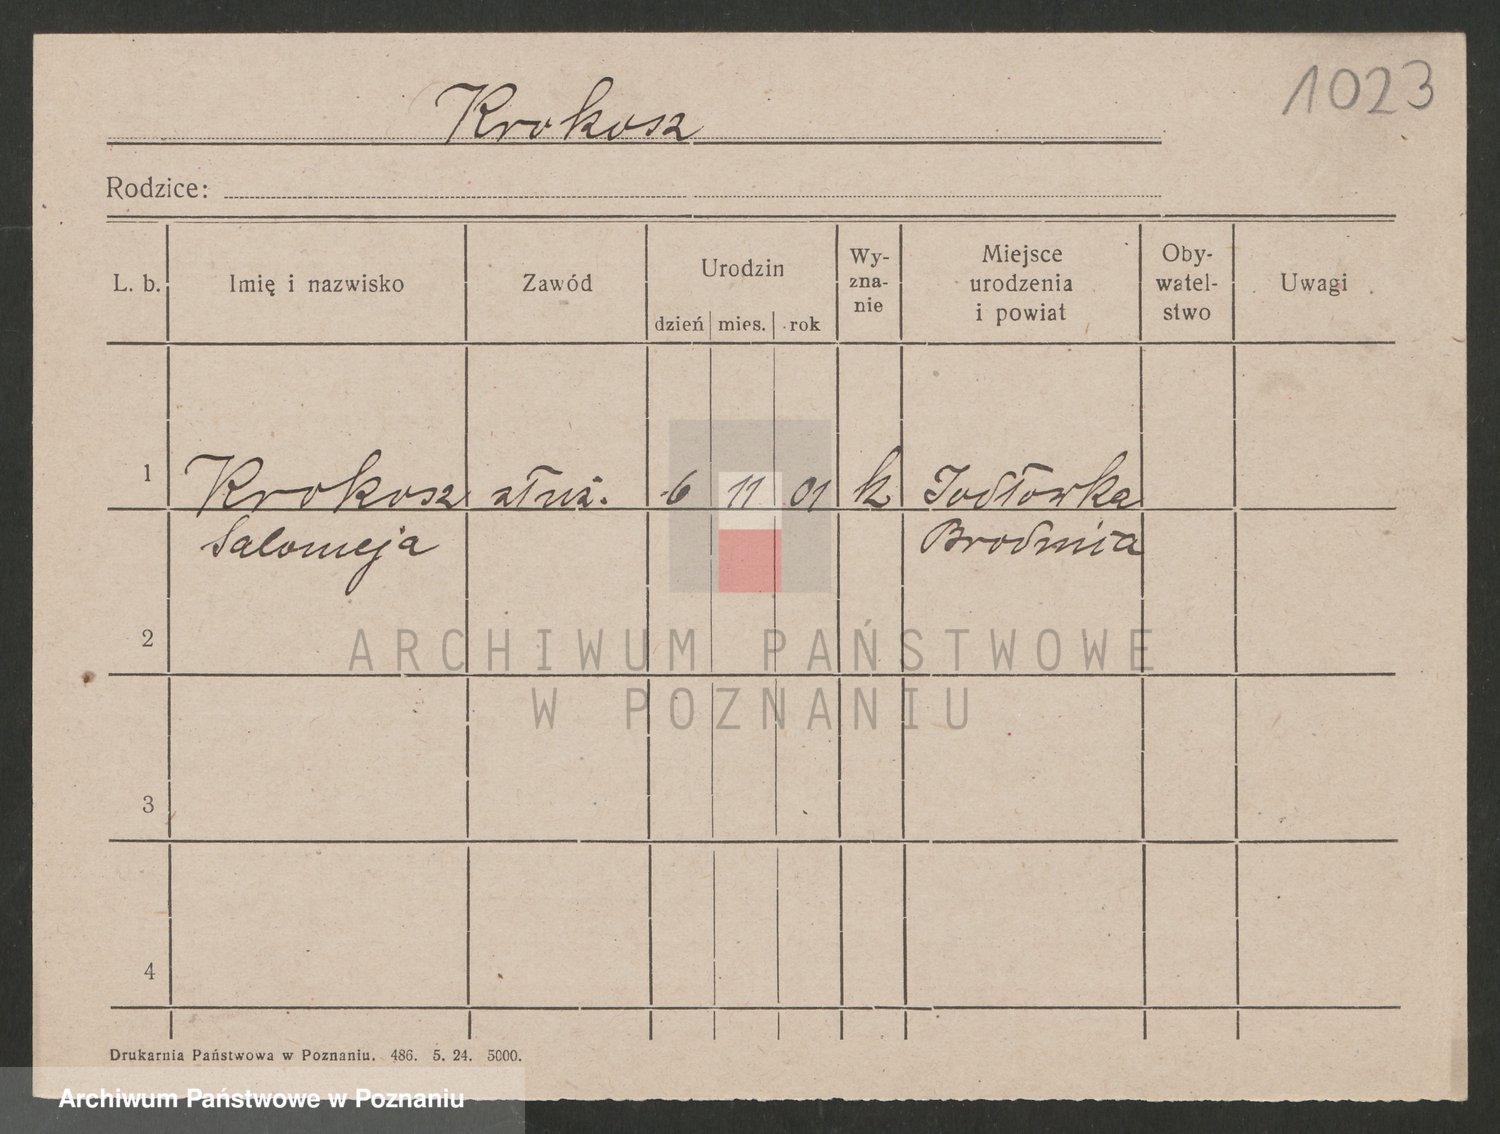 1023
Krokosz
Rodzice:
L. b. Imię i nazwisko Zawód Urodzin dzień mies. rok Wy-znanie Miejsce urodzenia i powiat Oby-watel-stwo Uwagi
1 Krokosz służ. 6 11 01 k Jodłowka
Salomeja Brodnia
2
ARCHIWUM PAŃSTWOWE
W POZNANIU
3
4
Drukarnia Państwowa w Poznaniu. 486. 5. 24. 5000.
Archiwum Państwowe w Poznaniu